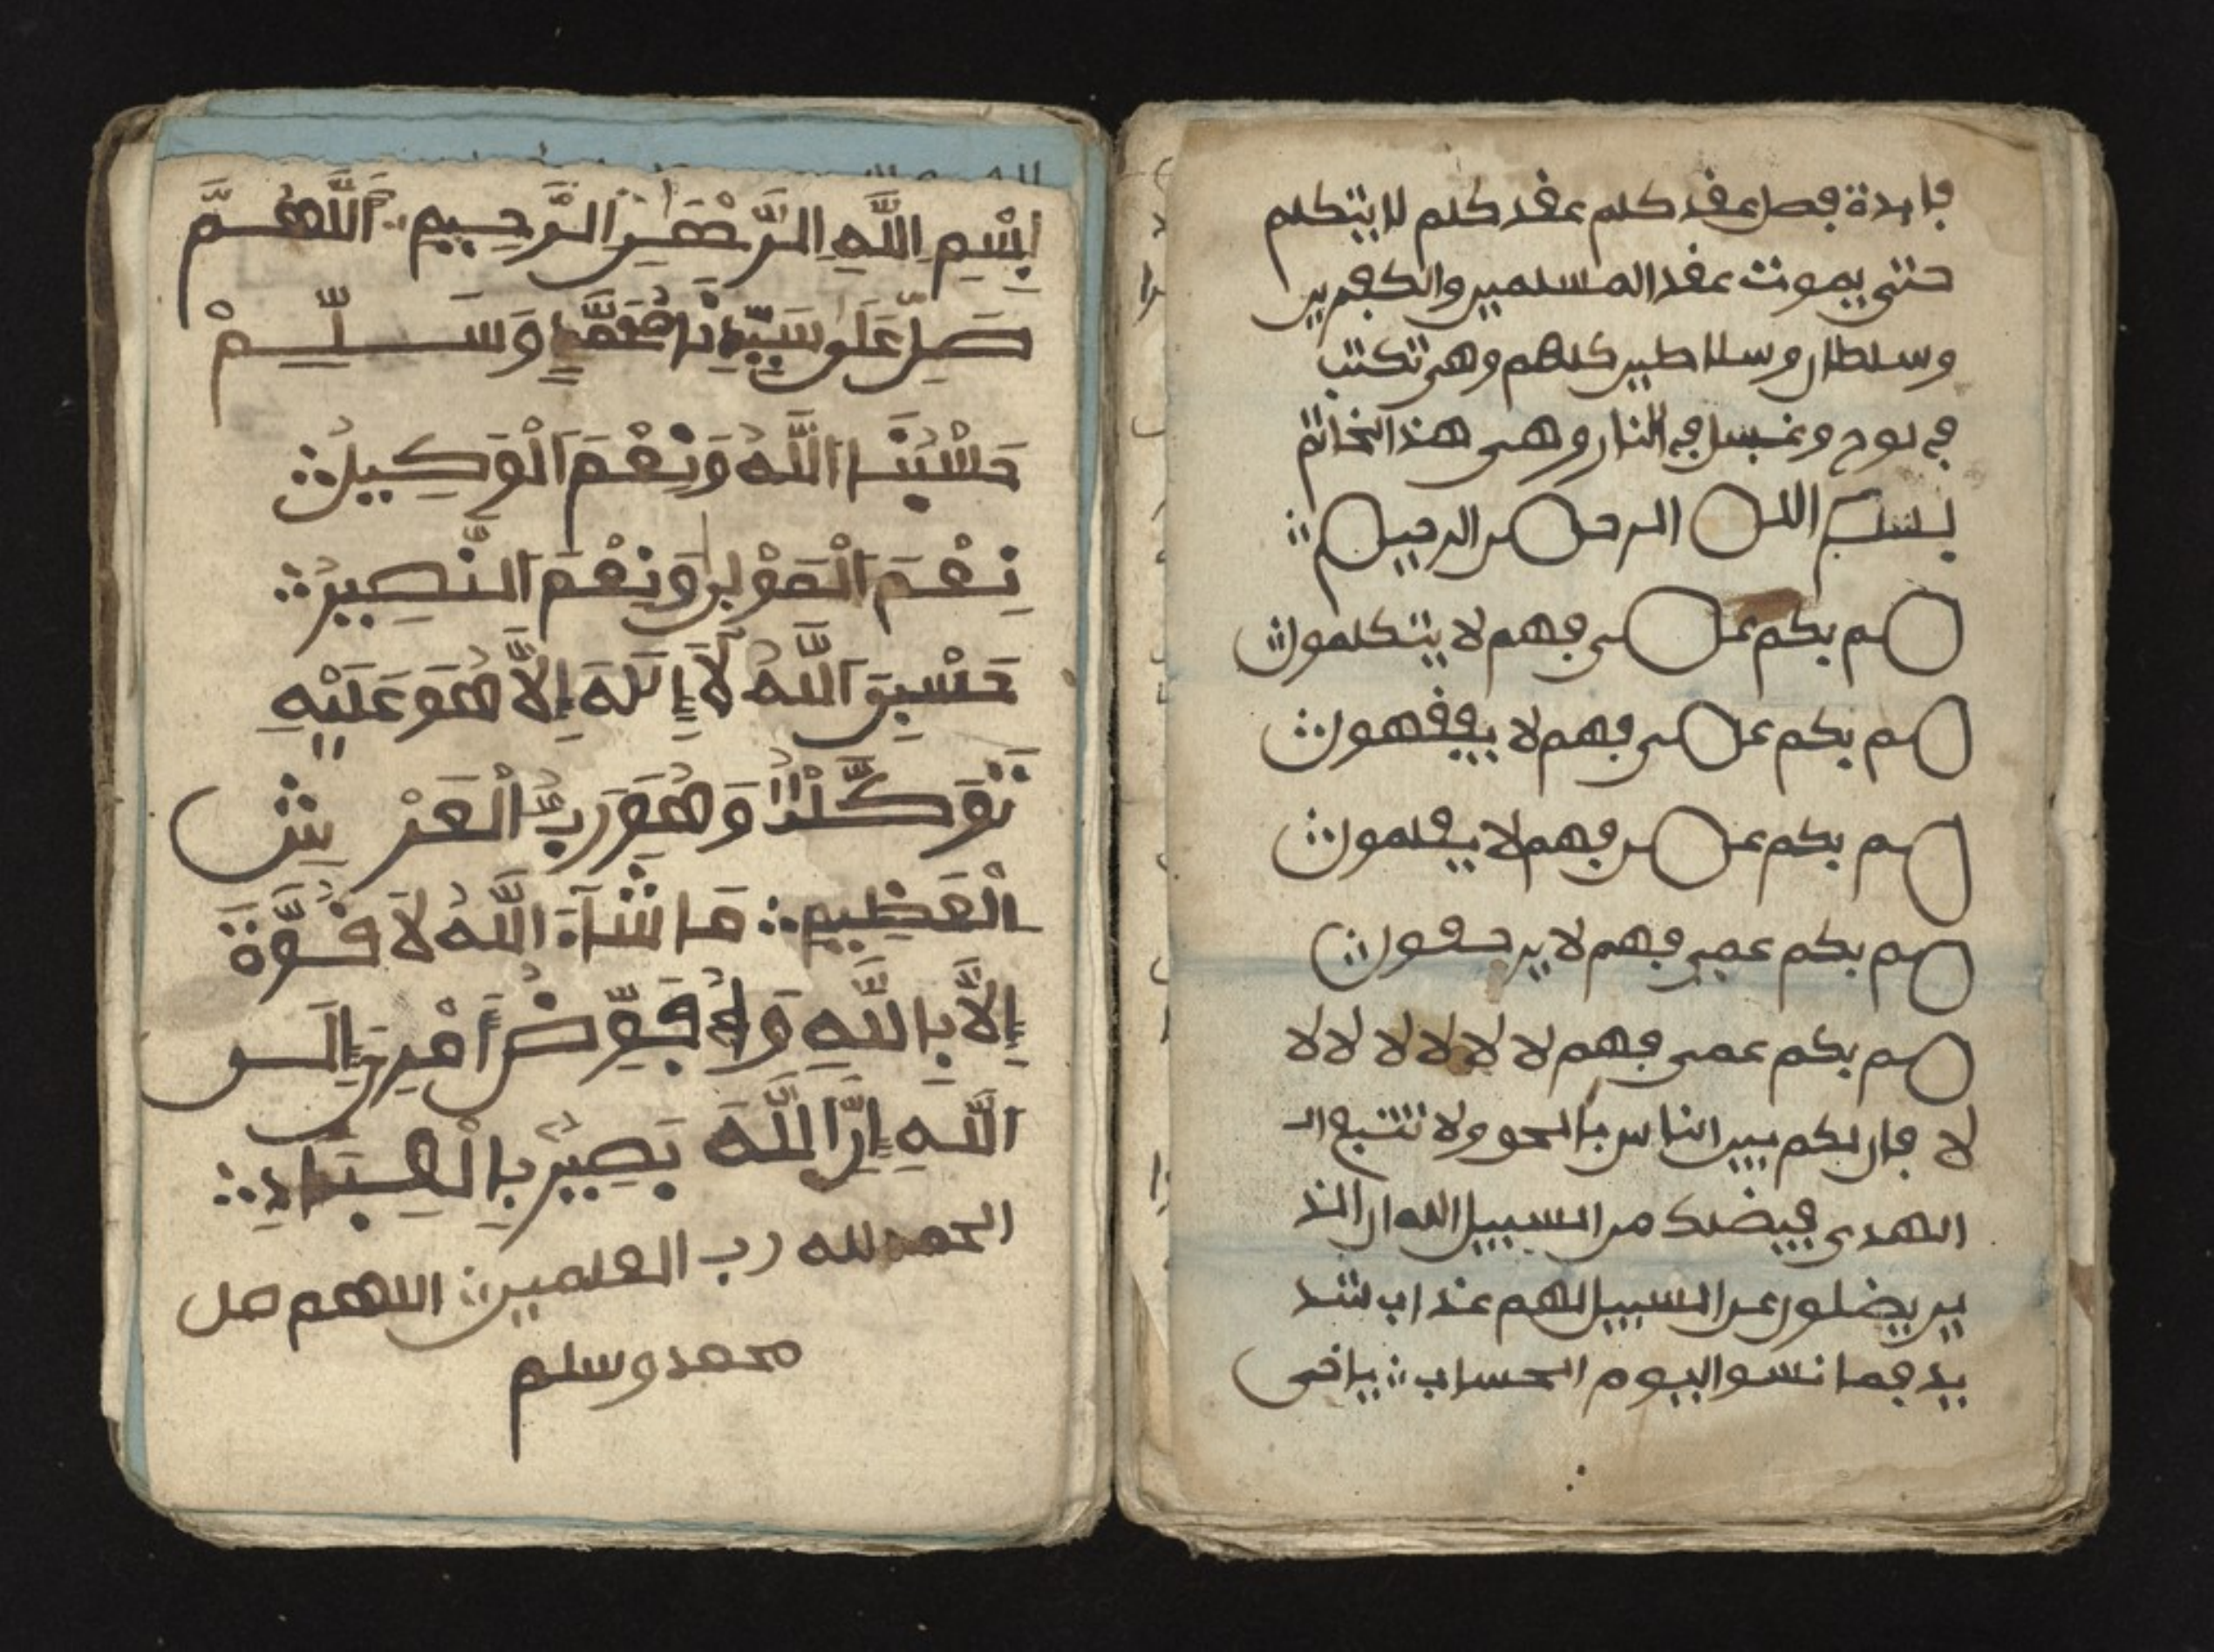 فايدة فصل عقد كلم عقد كلم لا يتكلم
حتى يموت عقد المسلمين والكفرين
وسلطان وسلاطين كلهم وهي تكتب
في لوح وغسل في النار وهي هذا الخاتم
بسم الله الرحمن الرحيم
صم بكم عمى فهم لا يتكلمون
صم بكم عمى فهم لا يفقهون
صم بكم عمى فهم لا يعلمون
صم بكم عمي فهم لا يرجعون
صم بكم عمى فهم لا لا لا لا لا لا لا
لا فان لكم بين الناس بالحق ولا تتبع ال
الهدى فيضلك من السبيل الله ان الذ
ين يضلون عن السبيل لهم عذاب شد
يد فما نسوا اليوم الحساب
بِسْمِ اللَّهِ الرَّحْمَنِ الرَّحِيمِ اللَّهُمَّ
صَلِّ عَلَى سَيِّدِنَا مُحَمَّدٍ وَسَلِّمْ
حَسْبُنَا اللَّهُ وَنِعْمَ الْوَكِيلُ
نِعْمَ الْمَوْلَى وَنِعْمَ النَّصِيرُ
حَسْبِيَ اللَّهُ لَا إِلَهَ إِلَّا هُوَ عَلَيْهِ
تَوَكَّلْتُ وَهُوَ رَبُّ الْعَرْشِ
الْعَظِيمِ مَا شَآءَ اللَّهُ لَا قُوَّةَ
إِلَّا بِاللَّهِ وَأُفَوِّضُ أَمْرِي إِلَى
اللَّهِ إِنَّ اللَّهَ بَصِيرٌ بِالْعِبَادِ
الحمد لله رب العلمين اللهم صل
محمد وسلم